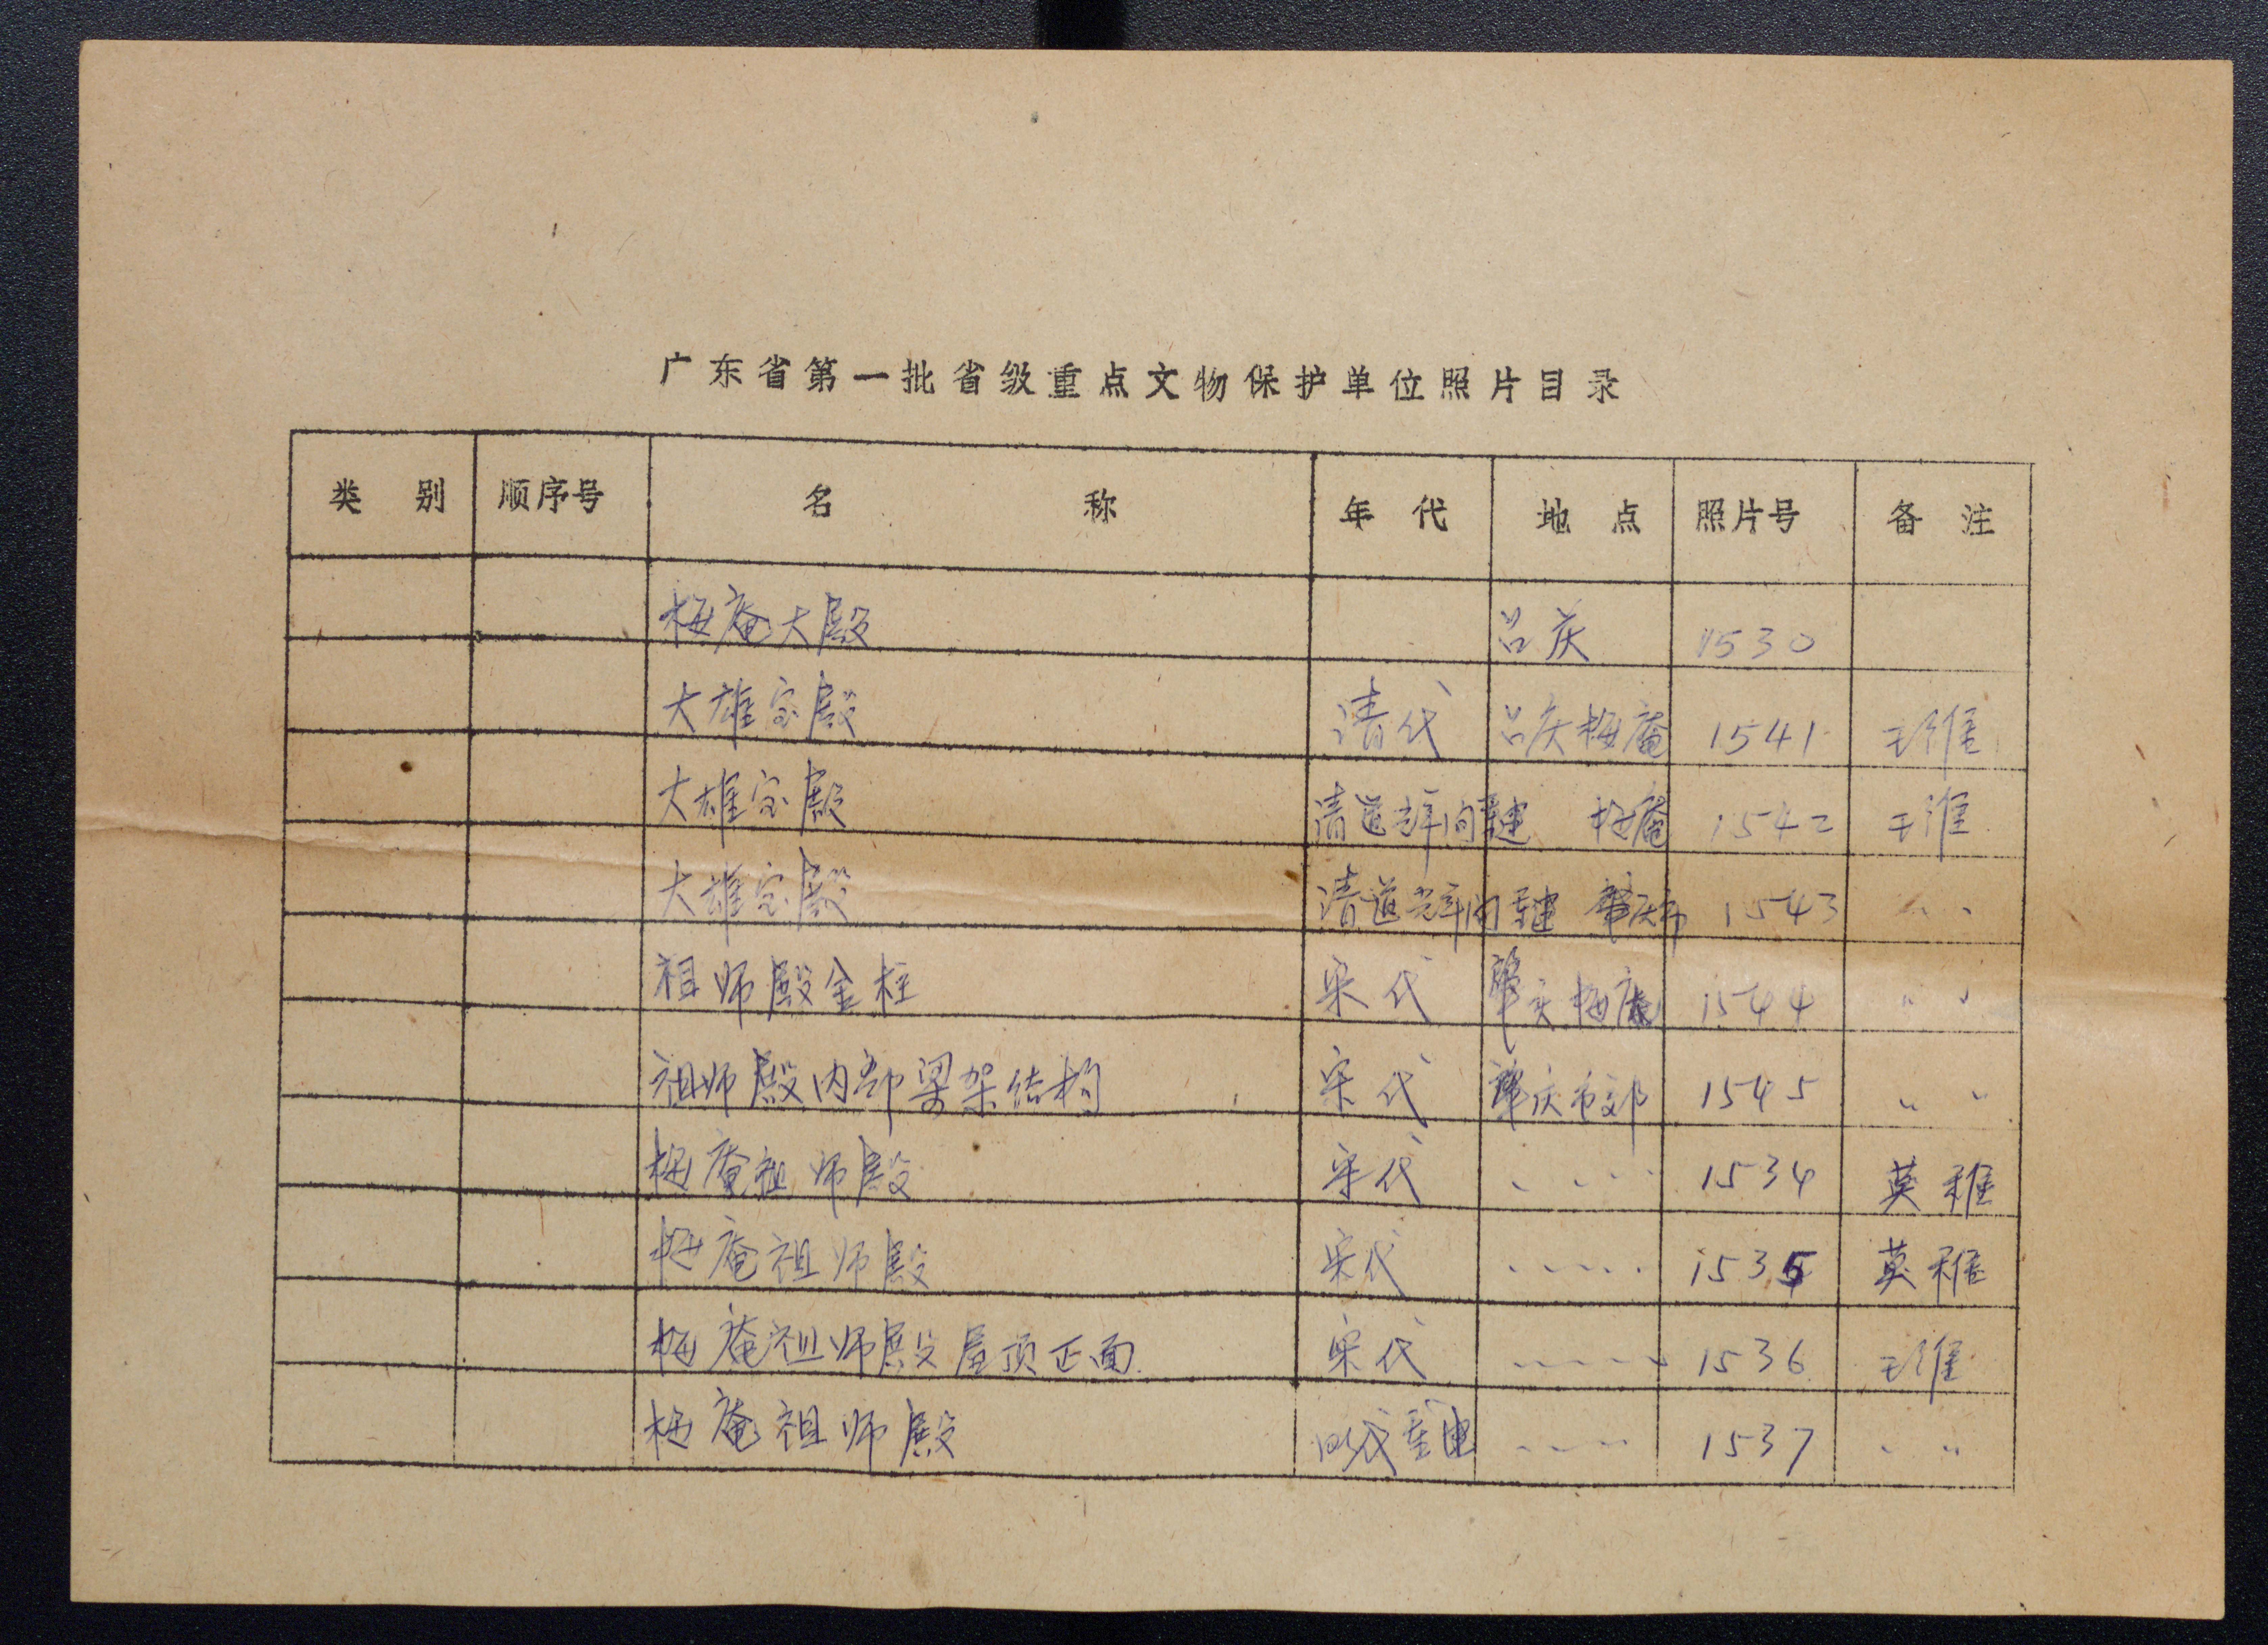 广东省第一批省级重点文物保护单位照片目录
类别 顺序号 名称 年代 地点 照片号 备注
梅庵大殿 吕庆 1530
大雄宝殿 清代 吕庆梅庵 1541
大雄宝殿 清道光年间重建 梅庵 1542
大雄宝殿 清道光年间重建 肇庆市 1543 〃 〃
祖师殿金柱 宋代 肇庆梅庵 1544 〃 〃
祖师殿内部梁架结构 宋代 肇庆市郊 1545 〃 〃
梅庵祖师殿 宋代 〃 〃 〃 1534 英稚
梅庵祖师殿 宋代 〃 〃 〃 〃 1535 英稚
梅庵祖师殿屋顶正面 宋代 〃 〃 〃 〃 1536
梅庵祖师殿 明代重建 〃 〃 〃 〃 1537 〃 〃